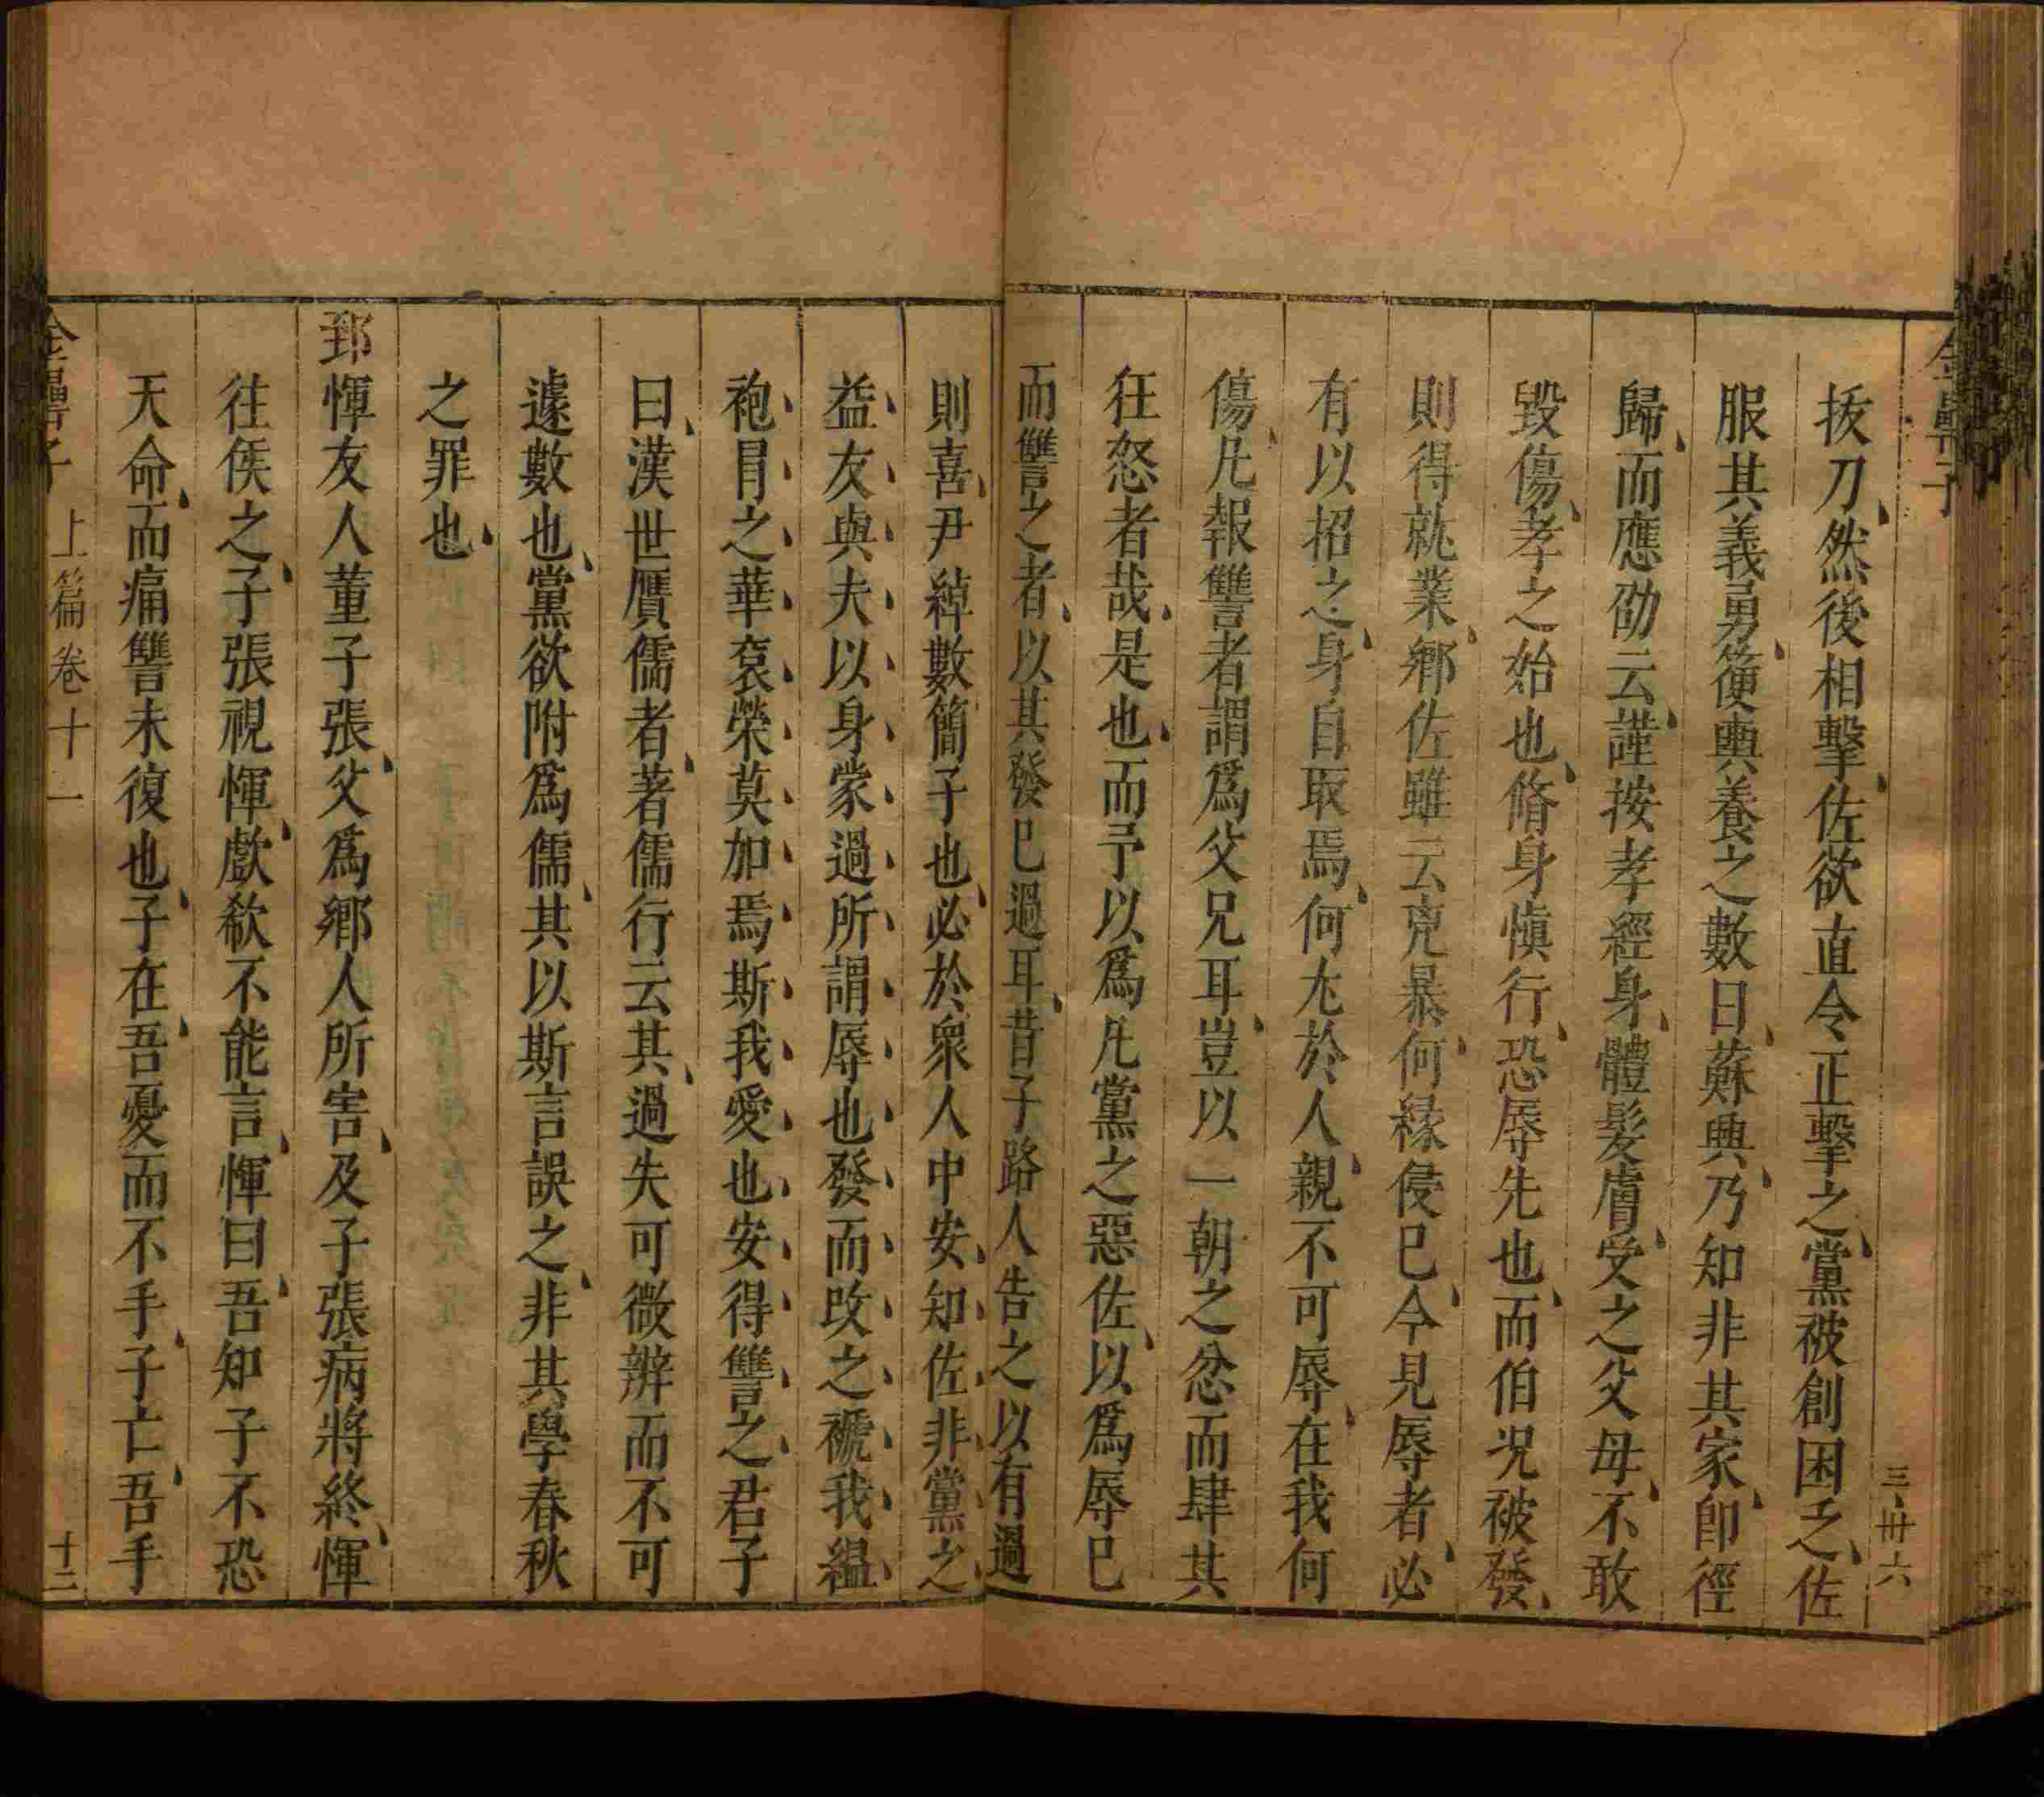 金罍子
三卅六
㧞刀然後相擊佐欲直令正擊之黨被創困乏佐
服其義勇箯輿養之數日蘇興乃知非其家卽徑
歸而應劭云謹按孝經身體髮膚受之父母不敢
毀傷孝之始也脩身愼行恐辱先也而伯况被發
則得就業鄉佐雖云兇暴何緣侵巳今見辱者必
有以招之身自取焉何尤於人親不可辱在我何
傷凡報讐者謂爲父兄耳豈以一朝之忿而肆其
狂怒者哉是也而予以爲凡黨之惡佐以爲辱巳
而讐之者以其發巳過耳昔子路人告之以有過
則喜尹綽數簡子也必於衆人中安知佐非黨之
益友與夫以身蒙過所謂辱也發而改之褫我縕
袍冐之華袞榮莫加焉斯我愛也安得讐之君子
曰漢世贋儒者著儒行云其過失可微辨而不可
遽數也黨欲附爲儒其以斯言誤之非其學春秋
之罪也
郅惲友人董子張父爲鄉人所害及子張病將終惲
往矦之子張視惲歔欷不能言惲曰吾知子不恐
天命而痛讐未復也子在吾憂而不手子亡吾手
金罍子 上篇卷十一 十二